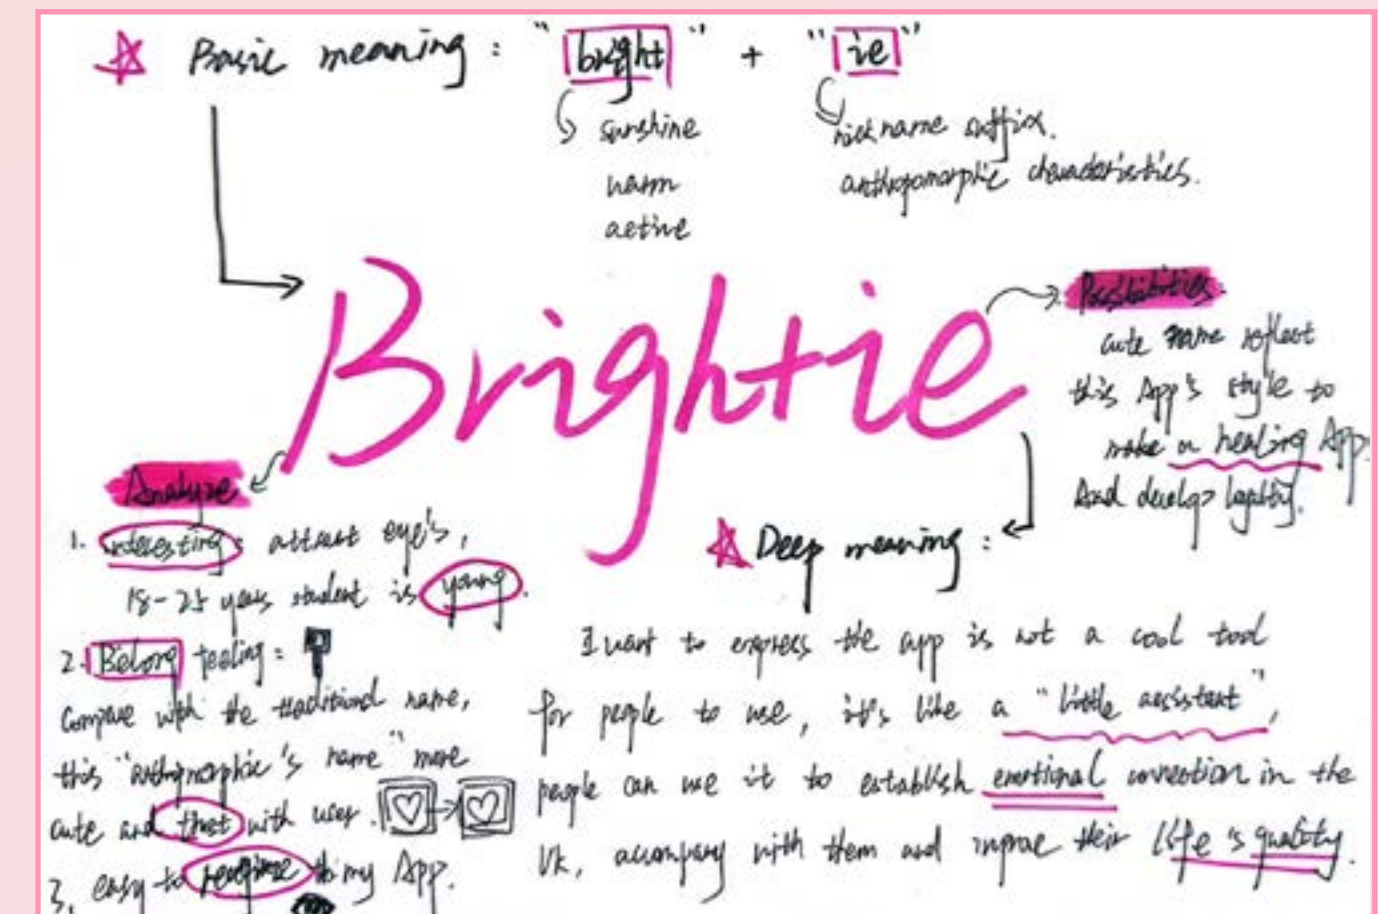 Basic meaning : "bright" + "ie"
sunshine
warm
active
nickname suffix.
anthropomorphic characteristics.
Brightie
Possibilities.
cute name reflect
this App's style to
make a healing App.
And develop loyalty.
Analyze
1. interesting : attract eye's,
18-25 years student is young.
2. Belong feeling :
Compare with the traditional name,
this "anthropomorphic's name" more
cute and trust with user.
3. easy to recognize to my App.
Deep meaning :
I want to express the app is not a cool tool
for people to use, it's like a "little assistant",
people can use it to establish emotional connection in the
UK, accompany with them and improve their life's quality.